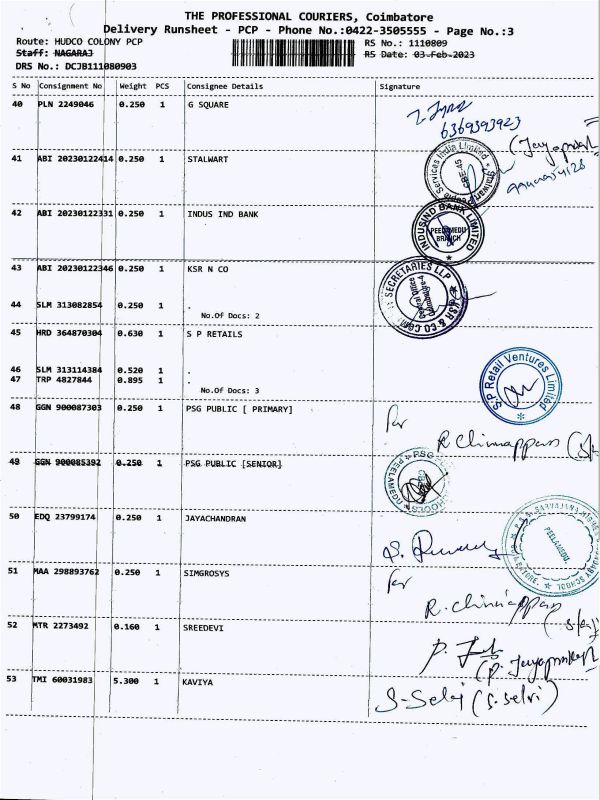 THE PROFESSIONAL COURIERS, Coimbatore
Delivery Runsheet - PCP - Phone No.:0422-3505555 - Page No.:3
Route: HUDCO COLONY PCP RS No.: 1110809
Staff: NAGARAJ RS Date: 03-Feb-2023
DRS No.: DCJB111080903
S No Consignment No Weight PCS Consignee Details Signature
40 PLN 2249046 0.250 1 G SQUARE
6369393923
41 ABI 20230122414 0.250 1 STALWART
Services India Limited
42 ABI 20230122331 0.250 1 INDUS IND BANK
INDUSIND BANK LIMITED
PEELAMEDU
BRANCH
43 ABI 20230122346 0.250 1 KSR N CO
SECRETARIES LLP
KSR & CO
44 SLM 313082854 0.250 1 .
No.Of Docs: 2
45 HRD 364870304 0.630 1 S P RETAILS
S.P Retail Ventures Limited
46 SLM 313114384 0.520 1 .
47 TRP 4827844 0.895 1 .
No.Of Docs: 3
48 GGN 900087303 0.250 1 PSG PUBLIC [ PRIMARY]
for
R Chinnappan
49 GGN 900085392 0.250 1 PSG PUBLIC [SENIOR]
PSG
50 EDQ 23799174 0.250 1 JAYACHANDRAN
PEELAMEDU
51 MAA 298893762 0.250 1 SIMGROSYS
for
R. Chinnappan
52 MTR 2273492 0.160 1 SREEDEVI
53 TMI 60031983 5.300 1 KAVIYA
S-Selvi (S. Selvi)